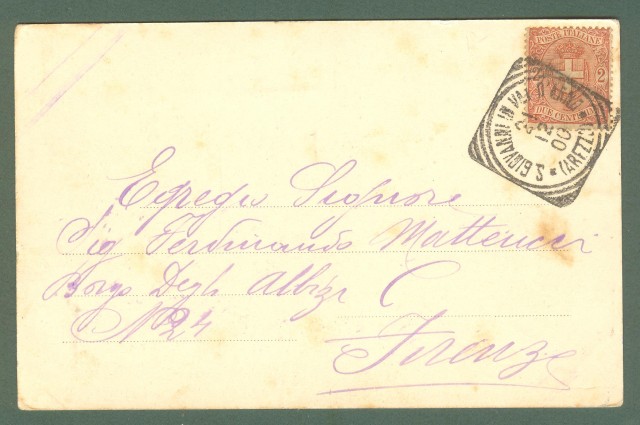 POSTE ITALIANE
2
DUE CENTESIMI
S. GIOVANNI IN VAL D'ARNO
* (AREZZO)
21
12
00
Egregio Signore
Sig Ferdinando Matteucci
Borgo Degli Albizi C
N° 24
Firenze